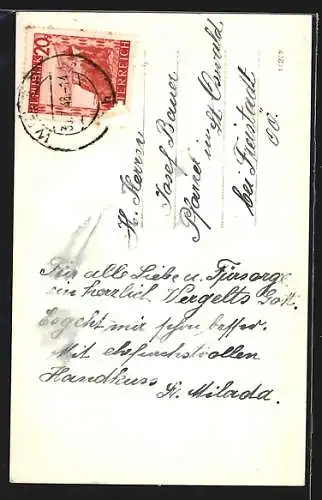 20
REPUBLIK ÖSTERREICH
H. Herrn
Josef Bauer
Pfarrer in St. Oswald
bei Freistadt
OÖ.
Für alle Liebe u. Fürsorge
ein herzlich. Vergelts Gott.
Es geht mir schon besser.
Mit ehrfurchtsvollen
Handkuss
Sr. Milada.